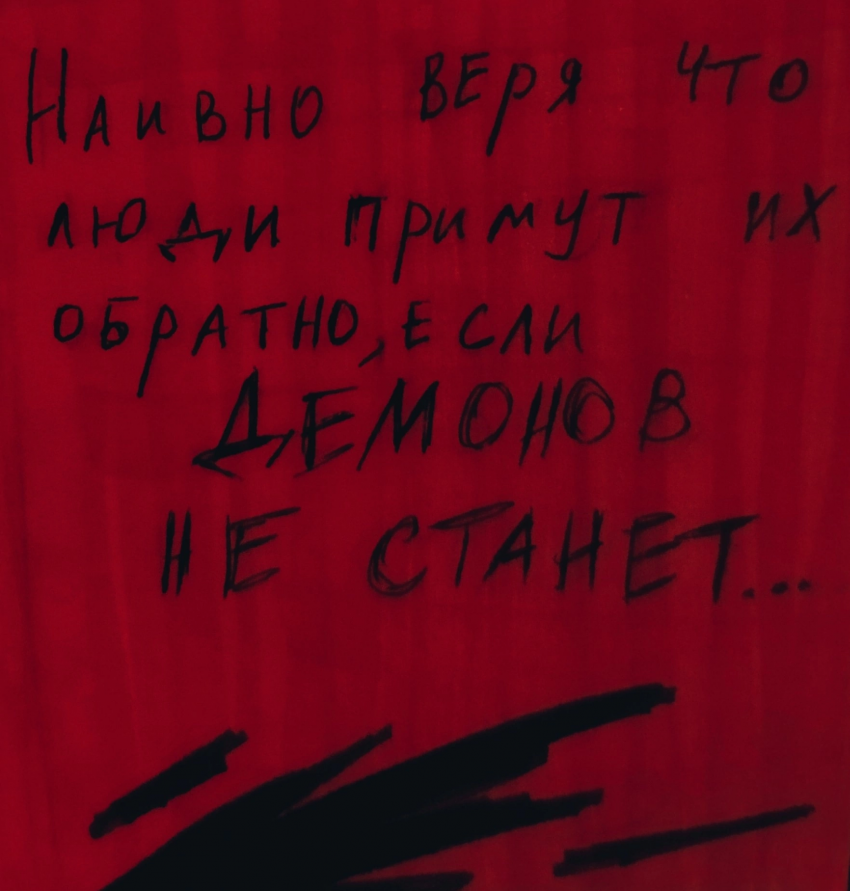 Наивно веря что
люди примут их
обратно, если
ДЕМОНОВ
НЕ СТАНЕТ...